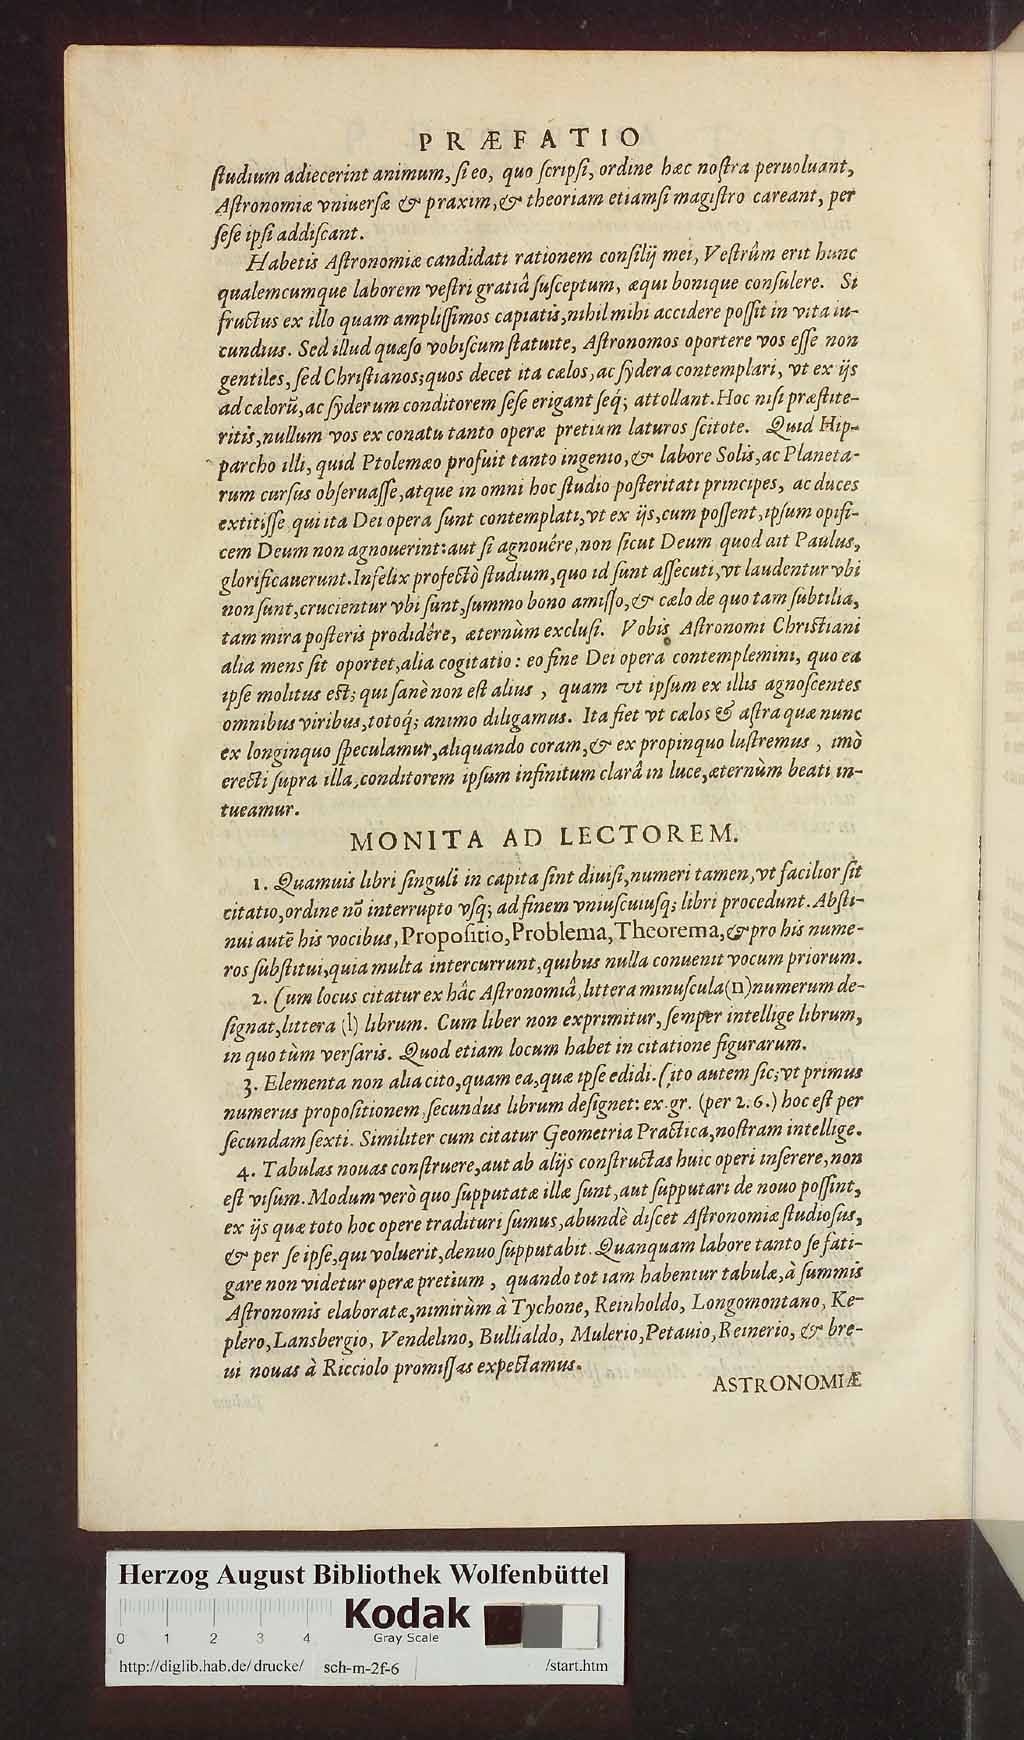 PRÆFATIO
ſtudium adiecerint animum, ſi eo, quo ſcripſi, ordine hæc noſtra peruoluant,
Aſtronomiæ vniuerſæ & praxim, & theoriam etiamſi magiſtro careant, per
ſeſe ipſi addiſcant.
Habetis Aſtronomiæ candidati rationem conſilij mei, Veſtrûm erit hunc
qualemcumque laborem veſtri gratiâ ſuſceptum, æqui bonique conſulere. Si
fructus ex illo quam ampliſſimos capiatis, nihil mihi accidere poſſit in vita iu-
cundius. Sed illud quæſo vobiſcum ſtatuite, Aſtronomos oportere vos eſſe non
gentiles, ſed Chriſtianos; quos decet ita cælos, ac ſydera contemplari, vt ex ijs
ad cælorũ, ac ſyderum conditorem ſeſe erigant ſeq́; attollant. Hoc niſi præſtite-
ritis, nullum vos ex conatu tanto operæ pretium laturos ſcitote. Quid Hip-
parcho illi, quid Ptolemæo profuit tanto ingenio, & labore Solis, ac Planeta-
rum curſus obſeruaſſe, atque in omni hoc ſtudio poſteritati principes, ac duces
extitiſſe qui ita Dei opera ſunt contemplati, vt ex ijs, cum poſſent, ipſum opifi-
cem Deum non agnouerint: aut ſi agnouêre, non ſicut Deum quod ait Paulus,
glorificauerunt. Infelix profectò ſtudium, quo id ſunt aſſecuti, vt laudentur vbi
non ſunt, crucientur vbi ſunt, ſummo bono amiſſo, & cælo de quo tam ſubtilia,
tam mira poſteris prodidêre, æternùm excluſi. Vobis Aſtronomi Chriſtiani
alia mens ſit oportet, alia cogitatio: eo fine Dei opera contemplemini, quo ea
ipſe molitus eſt; qui ſanè non eſt alius, quam vt ipſum ex illis agnoſcentes
omnibus viribus, totoq́; animo diligamus. Ita fiet vt cælos & aſtra quæ nunc
ex longinquo ſpeculamur, aliquando coram, & ex propinquo luſtremus, imò
erecti ſupra illa, conditorem ipſum infinitum clarâ in luce, æternùm beati in-
tueamur.
MONITA AD LECTOREM.
1. Quamuis libri ſinguli in capita ſint diuiſi, numeri tamen, vt facilior ſit
citatio, ordine nõ interrupto vſq; ad finem vniuſcuiuſq; libri procedunt. Abſti-
nui autẽ his vocibus, Propoſitio, Problema, Theorema, & pro his nume-
ros ſubſtitui, quia multa intercurrunt, quibus nulla conuenit vocum priorum.
2. Cum locus citatur ex hâc Aſtronomiâ, littera minuſcula (n) numerum de-
ſignat, littera (l) librum. Cum liber non exprimitur, ſemper intellige librum,
in quo tùm verſaris. Quod etiam locum habet in citatione figurarum.
3. Elementa non alia cito, quam ea, quæ ipſe edidi. Cito autem ſic; vt primus
numerus propoſitionem, ſecundus librum deſignet: ex. gr. (per 2. 6.) hoc eſt per
ſecundam ſexti. Similiter cum citatur Geometria Practica, noſtram intellige.
4. Tabulas nouas conſtruere, aut ab alijs conſtructas huic operi inſerere, non
eſt viſum. Modum verò quo ſupputatæ illæ ſunt, aut ſupputari de nouo poſſint,
ex ijs quæ toto hoc opere tradituri ſumus, abundè diſcet Aſtronomiæ ſtudioſus,
& per ſe ipſe, qui voluerit, denuo ſupputabit. Quanquam labore tanto ſe fati-
gare non videtur operæ pretium, quando tot iam habentur tabulæ, à ſummis
Aſtronomis elaboratæ, nimirùm à Tychone, Reinholdo, Longomontano, Ke-
plero, Lansbergio, Vendelino, Bullialdo, Mulerio, Petauio, Reinerio, & bre-
ui nouas à Ricciolo promiſſas expectamus.
ASTRONOMIÆ
Herzog August Bibliothek Wolfenbüttel
Kodak
Gray Scale
0 1 2 3 4
http://diglib.hab.de/drucke/ sch-m-2f-6 /start.htm